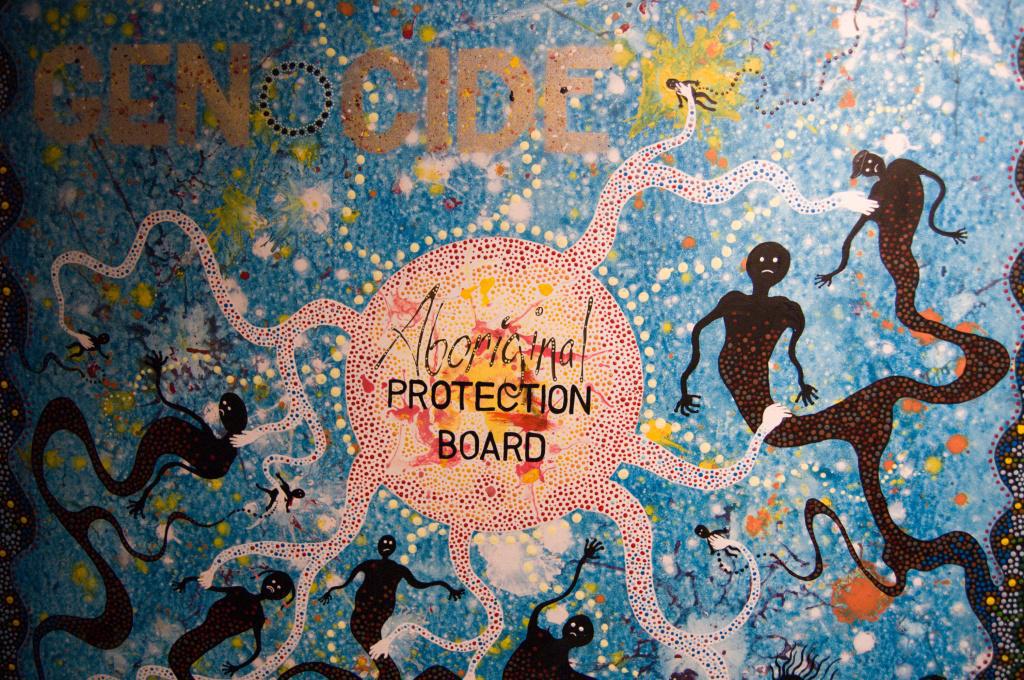 GENOCIDE
Aboriginal
PROTECTION
BOARD